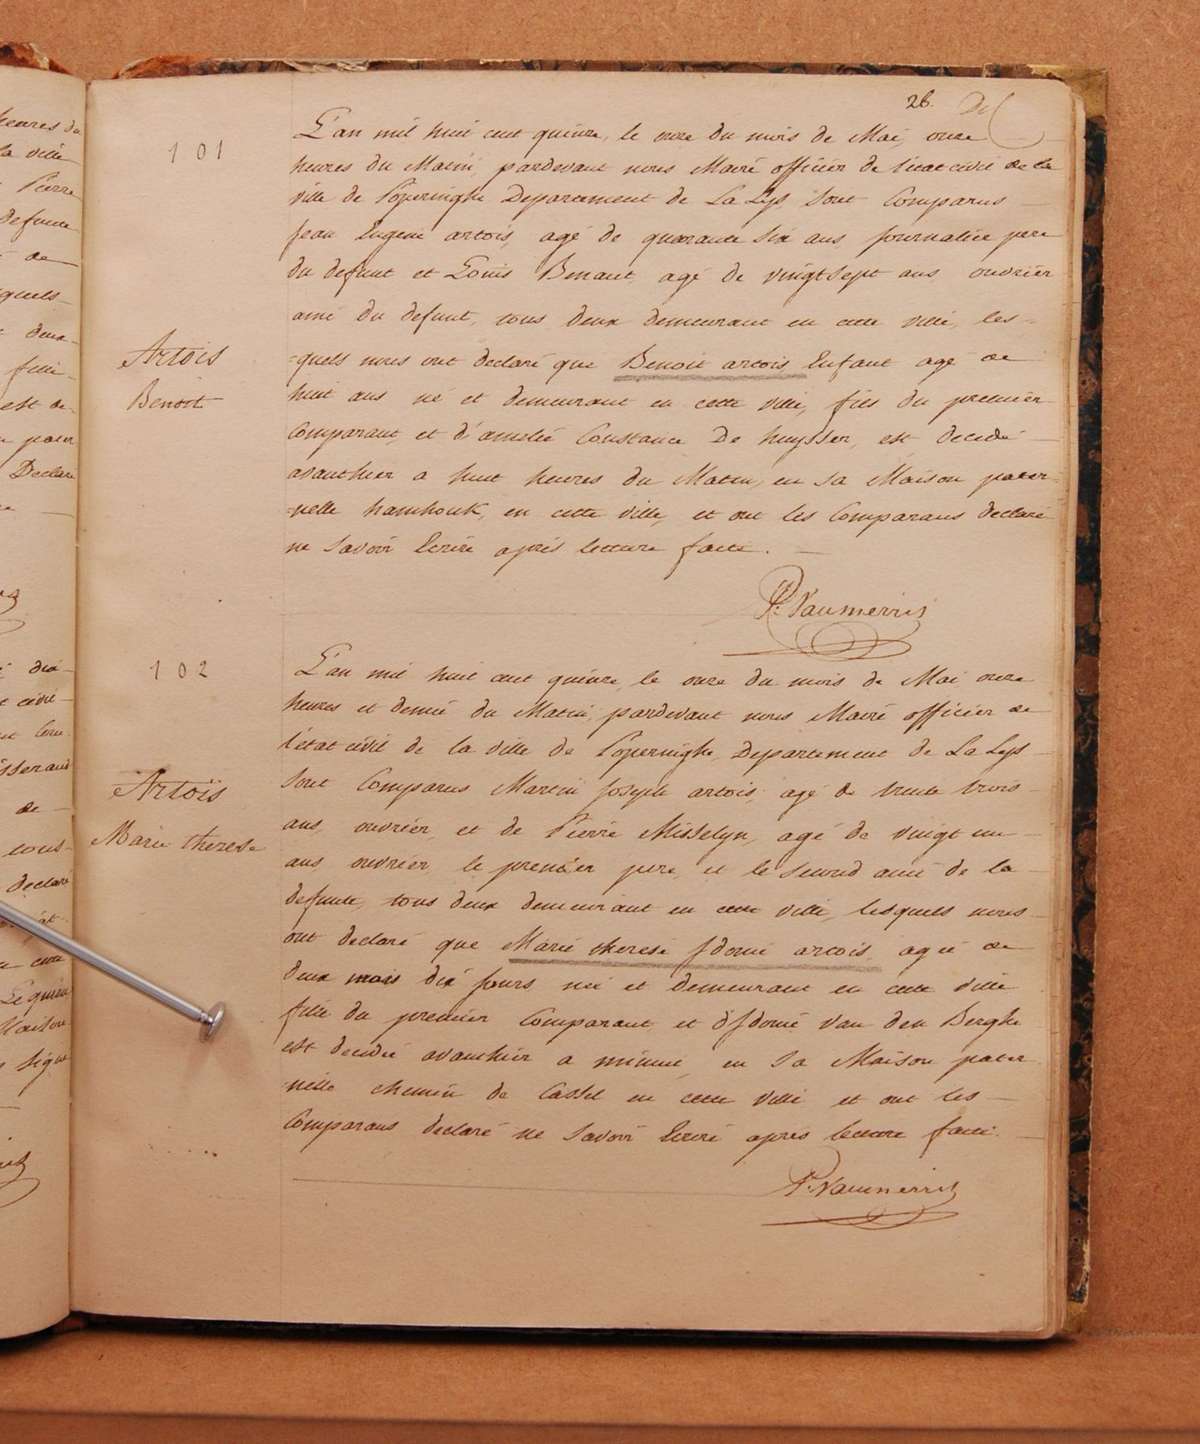 26.
101
L'an mil huit cent quinze, le onze du mois de Mai, onze
heures du Matin, pardevant nous Maire officier de l'etat civil de la
ville de Poperinghe Departement de La Lys sont Comparus
Jean Eugene artois, agé de quarante six ans, journalier pere
du defunt et Louis Benaut, agé de vingt sept ans, ouvrier
ami du defunt, tous deux demeurant en cette ville, les-
Artois
Benoit
-quels nous ont declaré que Benoit artois Enfant agé de
huit ans né et demeurant en cette ville, fils du premier
Comparant et d'amelie Constance De huysser, est decedé
avanthier a huit heures du Matin, en sa Maison pater-
-nelle hamhouk, en cette ville, et ont les Comparans declaré
ne savoir Ecrire après lecture faite.
P. Vanmerris
102
L'an mil huit cent quinze, le onze du mois de Mai onze
heures et demie du Matin, pardevant nous Maire officier de
l'état civil de la ville de Poperinghe, Departement de La Lys
sont Comparus Martin Joseph artois, agé de trente trois
Artois
Marie therese
ans, ouvrier, et de Pierre Misselyn, agé de vingt un
ans, ouvrier, le premier pere, et le second ami de la
defunte, tous deux demeurant en cette ville, lesquels nous
ont declaré que Marie therese Jdonie artois, agée de
deux mois dix jours née et demeurant en cette ville
fille du premier Comparant et d'Jdonie van den Berghe
est decedée avanthier a minuit, en sa Maison pater
-nelle chemin de Cassel en cette ville et ont les
Comparans declaré ne savoir Ecrire après lecture faite.
P. Vanmerris